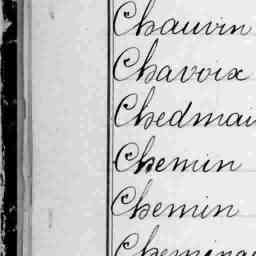 Chauvin
Chavoix
Chedmai
Chemin
Chemin